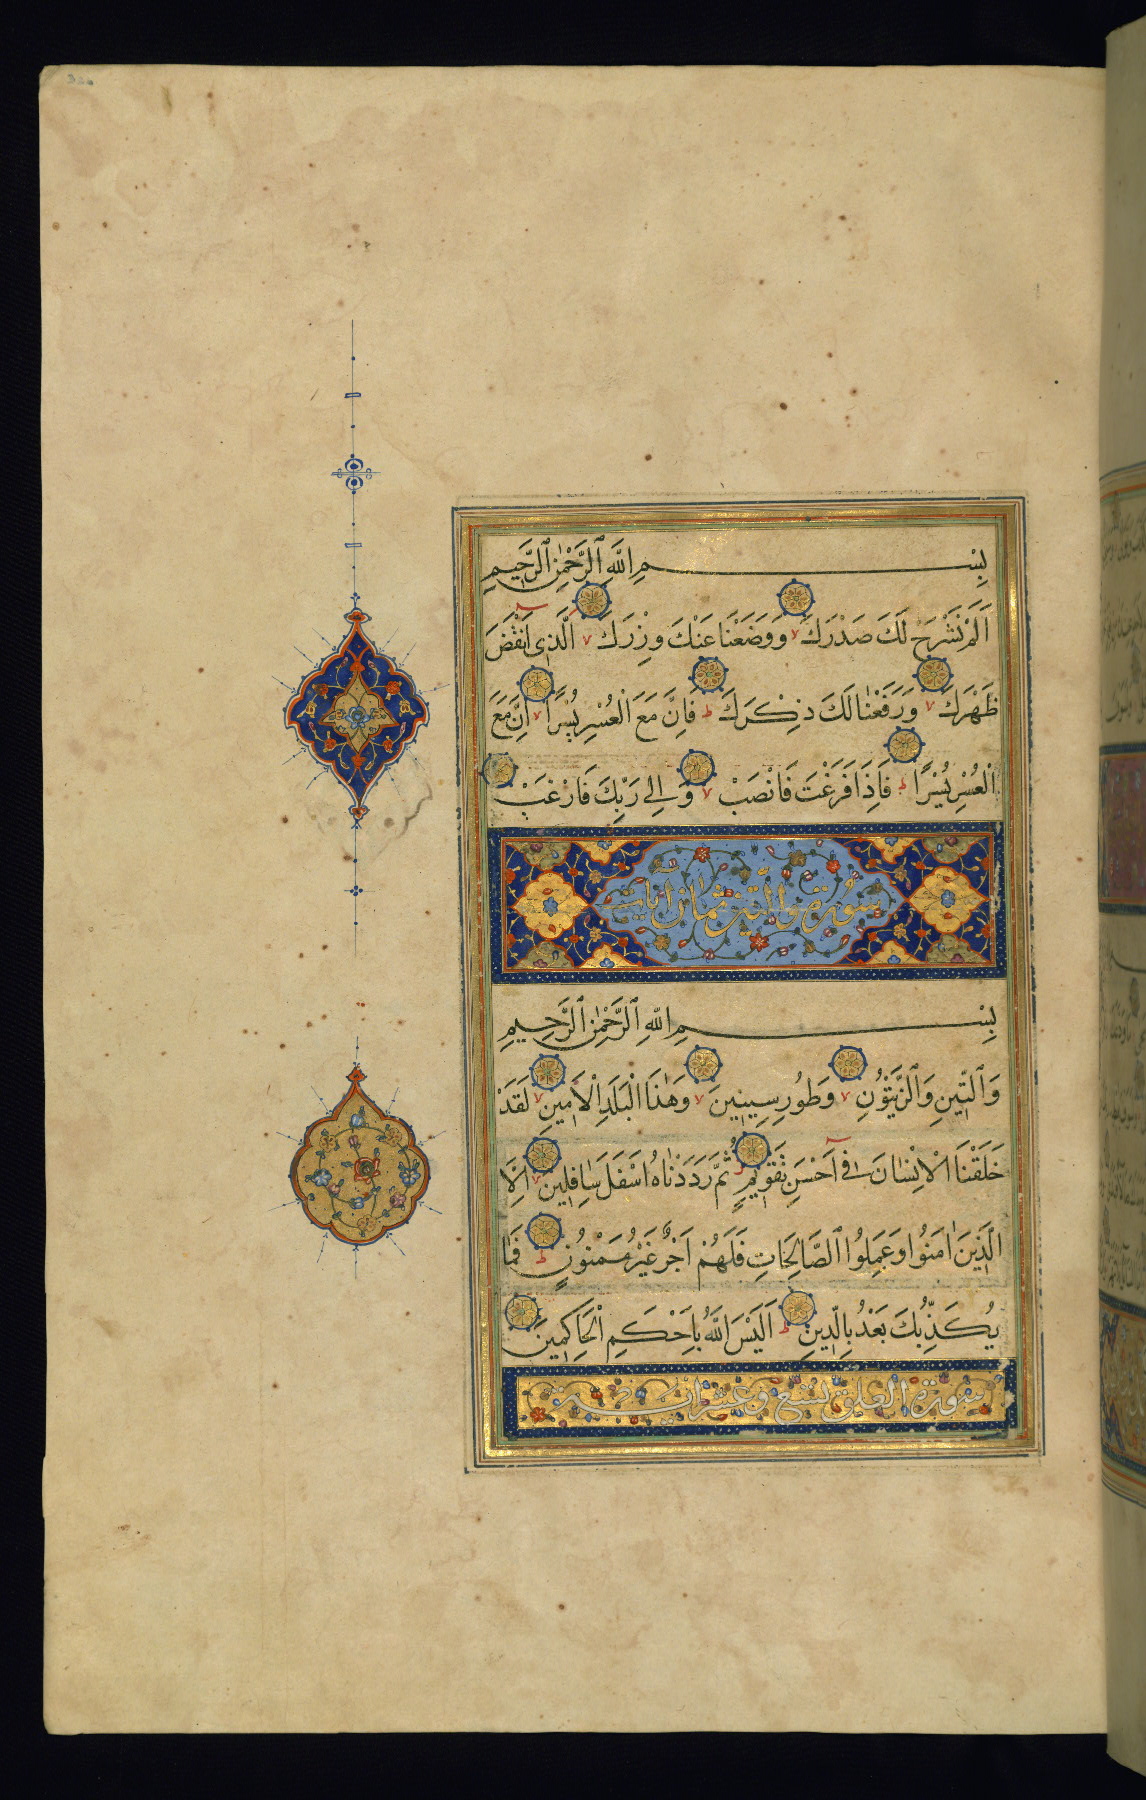 بِسْمِ اللَّهِ الرَّحْمٰنِ الرَّحِيمِ
اَلَمْ نَشْرَحْ لَكَ صَدْرَكَ وَوَضَعْنَا عَنْكَ وِزْرَكَ الَّذِى اَنْقَضَ
ظَهْرَكَ وَرَفَعْنَا لَكَ ذِكْرَكَ فَاِنَّ مَعَ الْعُسْرِ يُسْرًا اِنَّ مَعَ
الْعُسْرِ يُسْرًا فَاِذَا فَرَغْتَ فَانْصَبْ وَاِلٰى رَبِّكَ فَارْغَبْ
سورة والتين ثمان آيات
بِسْمِ اللَّهِ الرَّحْمٰنِ الرَّحِيمِ
وَالتِّينِ وَالزَّيْتُونِ وَطُورِ سِينِينَ وَهٰذَا الْبَلَدِ الْاَمِينِ لَقَدْ
خَلَقْنَا الْاِنْسَانَ فِى اَحْسَنِ تَقْوِيمٍ ثُمَّ رَدَدْنَاهُ اَسْفَلَ سَافِلِينَ اِلَّا
الَّذِينَ اٰمَنُوا وَعَمِلُوا الصَّالِحَاتِ فَلَهُمْ اَجْرٌ غَيْرُ مَمْنُونٍ فَمَا
يُكَذِّبُكَ بَعْدُ بِالدِّينِ اَلَيْسَ اللَّهُ بِاَحْكَمِ الْحَاكِمِينَ
سورة العلق تسع وعشر آيات